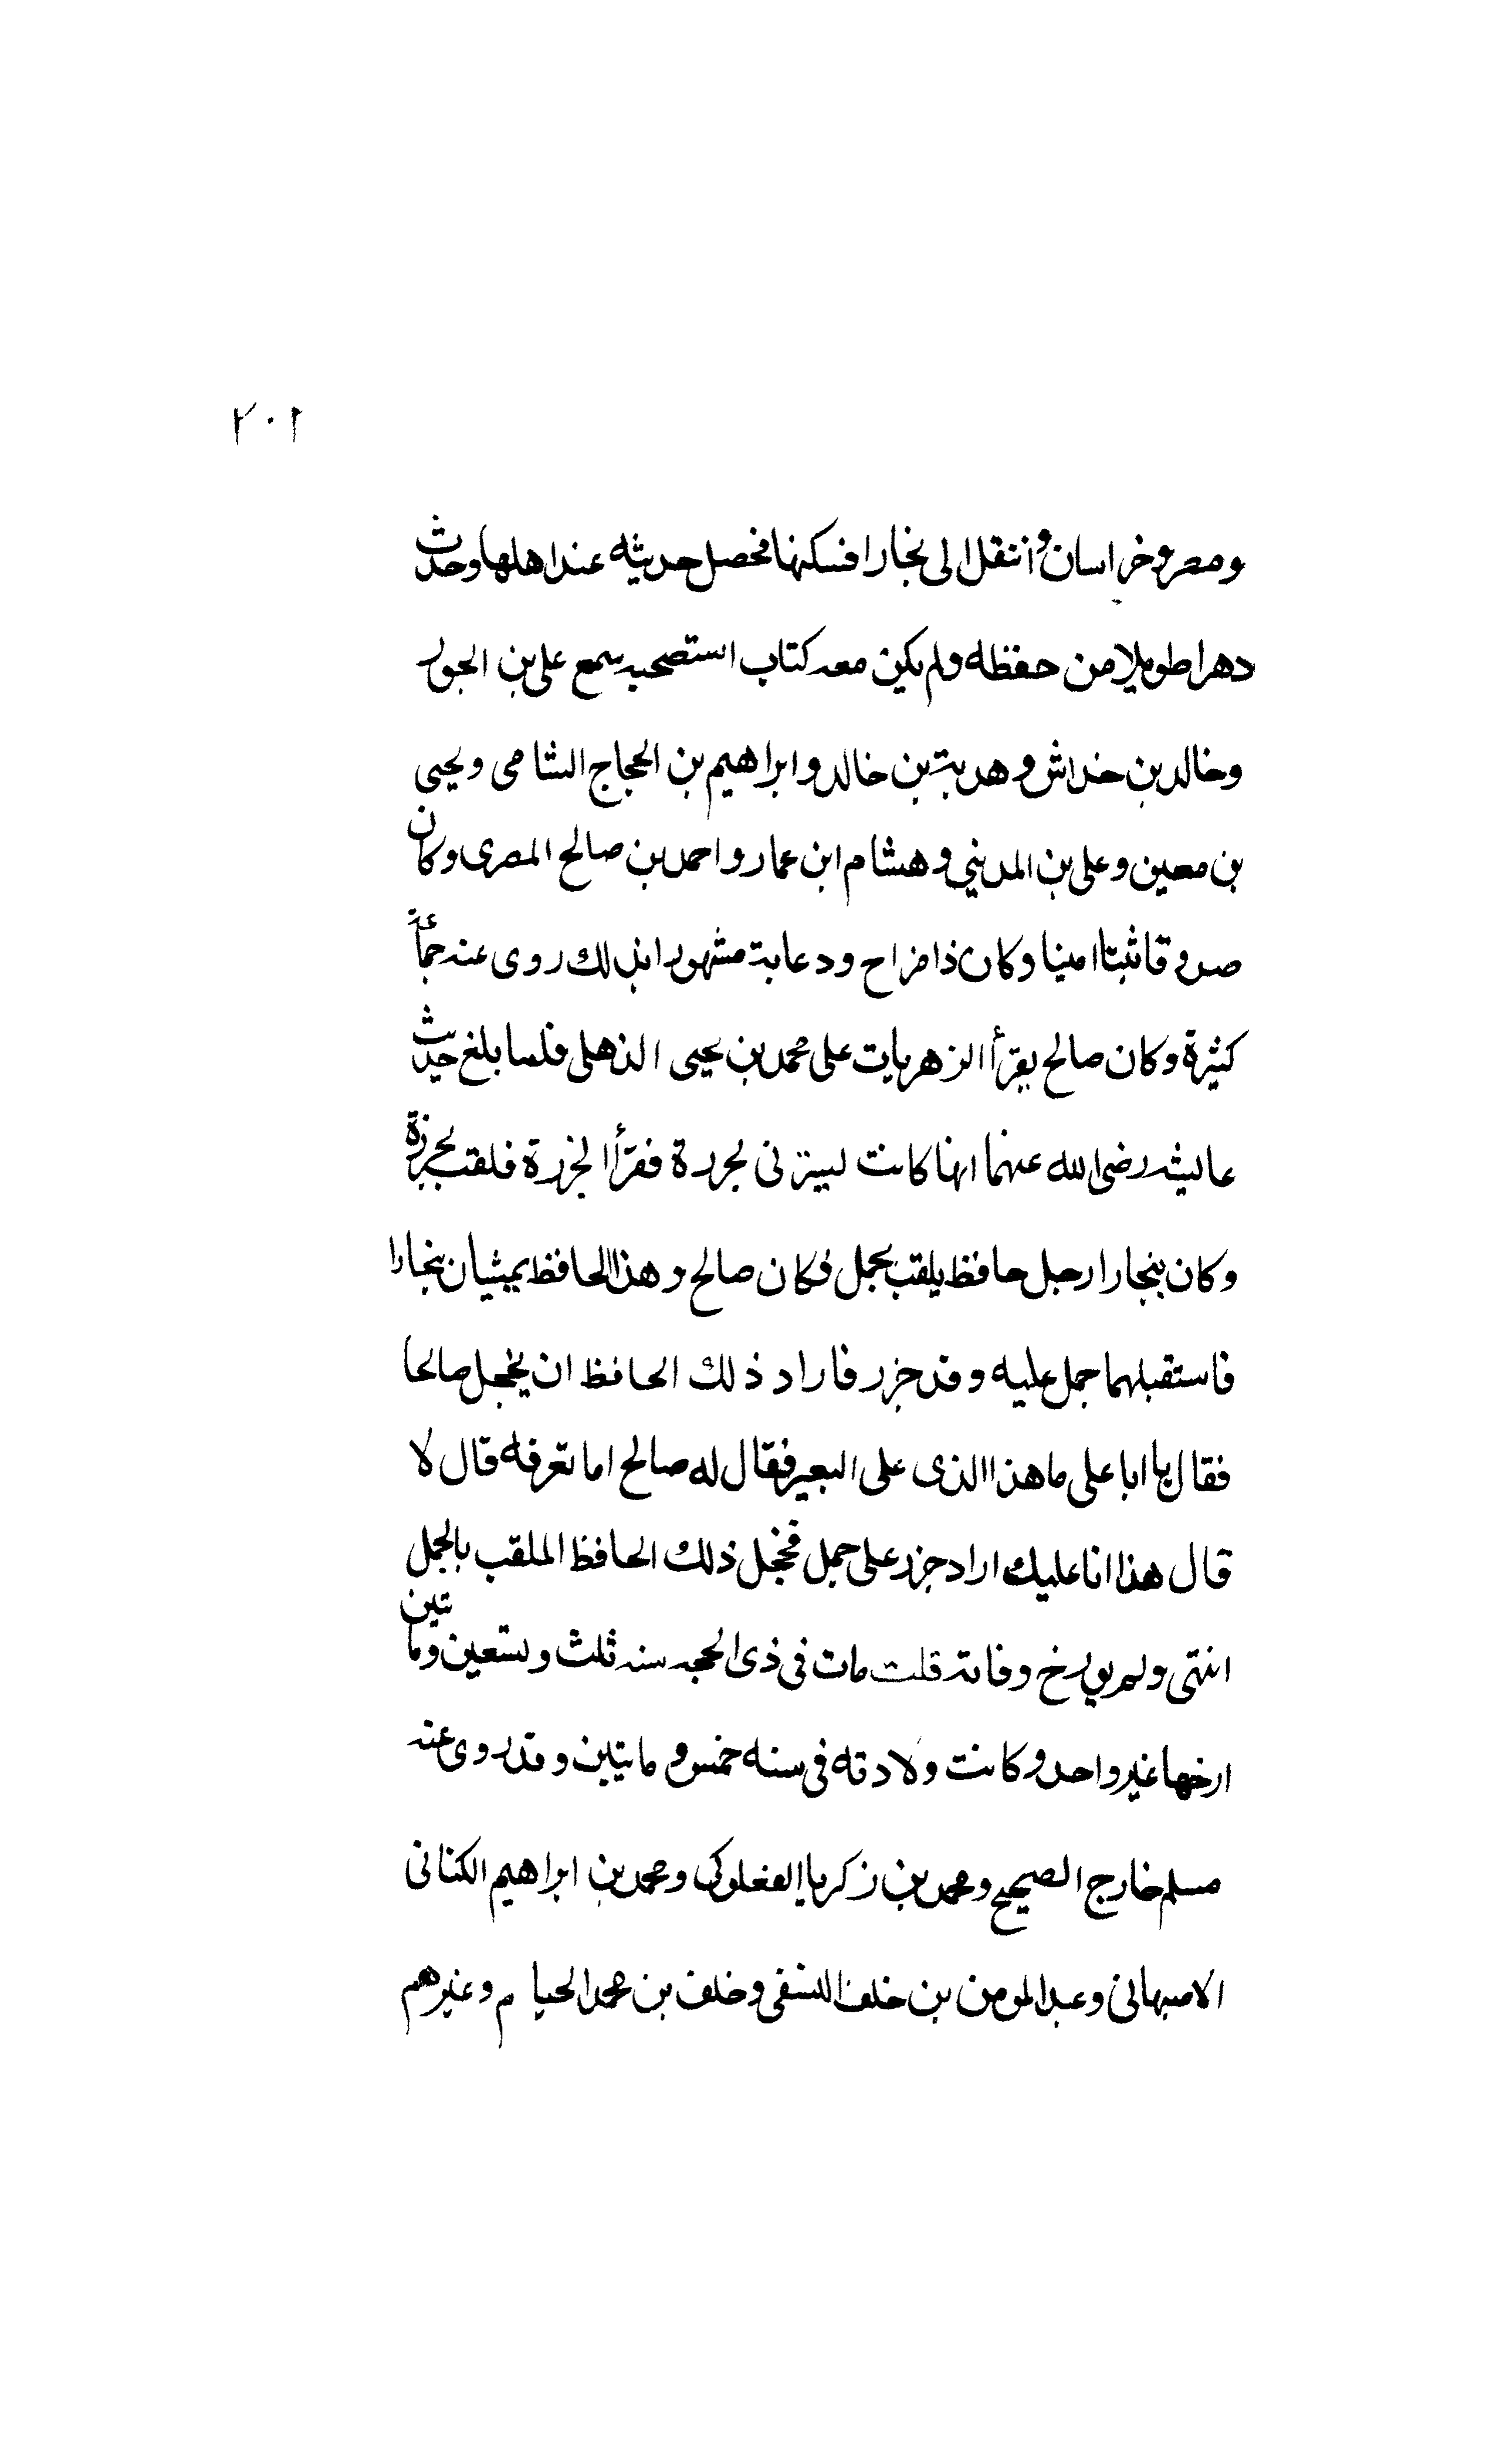 ٢٠١
ومصر وخراسان وانتقل الى بخارا فسكنها فحصل حديثه عند اهلها وحدث
دهرا طويلا من حفظه ولم يكن معه كتاب استصحبه سمع على بن الجعد
وخالد بن خداش وهدبة بن خالد وابراهيم بن الحجاج الشامى ويحيى
بن معين وعلى بن المدينى وهشام ابن عمار واحمد بن صالح المصرى وكان
صدوقا ثبتا امينا وكان ذا مزاح ودعابة مشهورا بذلك روى عنه جماعة
كثيرة وكان صالح يقرأ الزهريات على محمد بن يحيى الذهلى فلما بلغ حديث
عايشه رضى الله عنهما انها كانت تسترقى بجردة فقرأ الخزرة فلقب بجزرة
وكان ببخارا رجل حافظ يلقب بجمل فكان صالح وهذا الحافظ يمشيان ببخارا
فاستقبلهما جمل عليه وقد جزر فاراد ذلك الحافظ ان يخجل صالحا
فقال يا ابا على ما هذا الذى على البعير فقال له صالح اما تعرفه قال لا
قال هذا انا عليك اراد جزر على جمل فخجل ذلك الحافظ الملقب بالجمل
انتهى ولم يورخ وفاته قلت مات فى ذى الحجه سنه ثلث وتسعين ومأتين
ارخها غير واحد وكانت ولادته فى سنه خمس ومايتين وقد روى عنه
مسلم خارج الصحيح ومحمد بن زكريا ومحمد بن ابراهيم الكنانى
الاصبهانى وعبد المومن بن خلف النسفى وخلف بن محمد الحيام وغيرهم